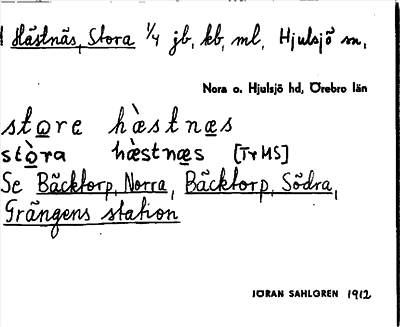 Hästnäs, Stora ¼ jb, kb, ml, Hjulsjö sn,
Nora o. Hjulsjö hd, Örebro län
store hæ̀stnæs
stò̱ra hæ̀stnæs [TvMS]
Se Bäcktorp, Norra, Bäcktorp, Södra,
Grängens station
JÖRAN SAHLGREN 1912